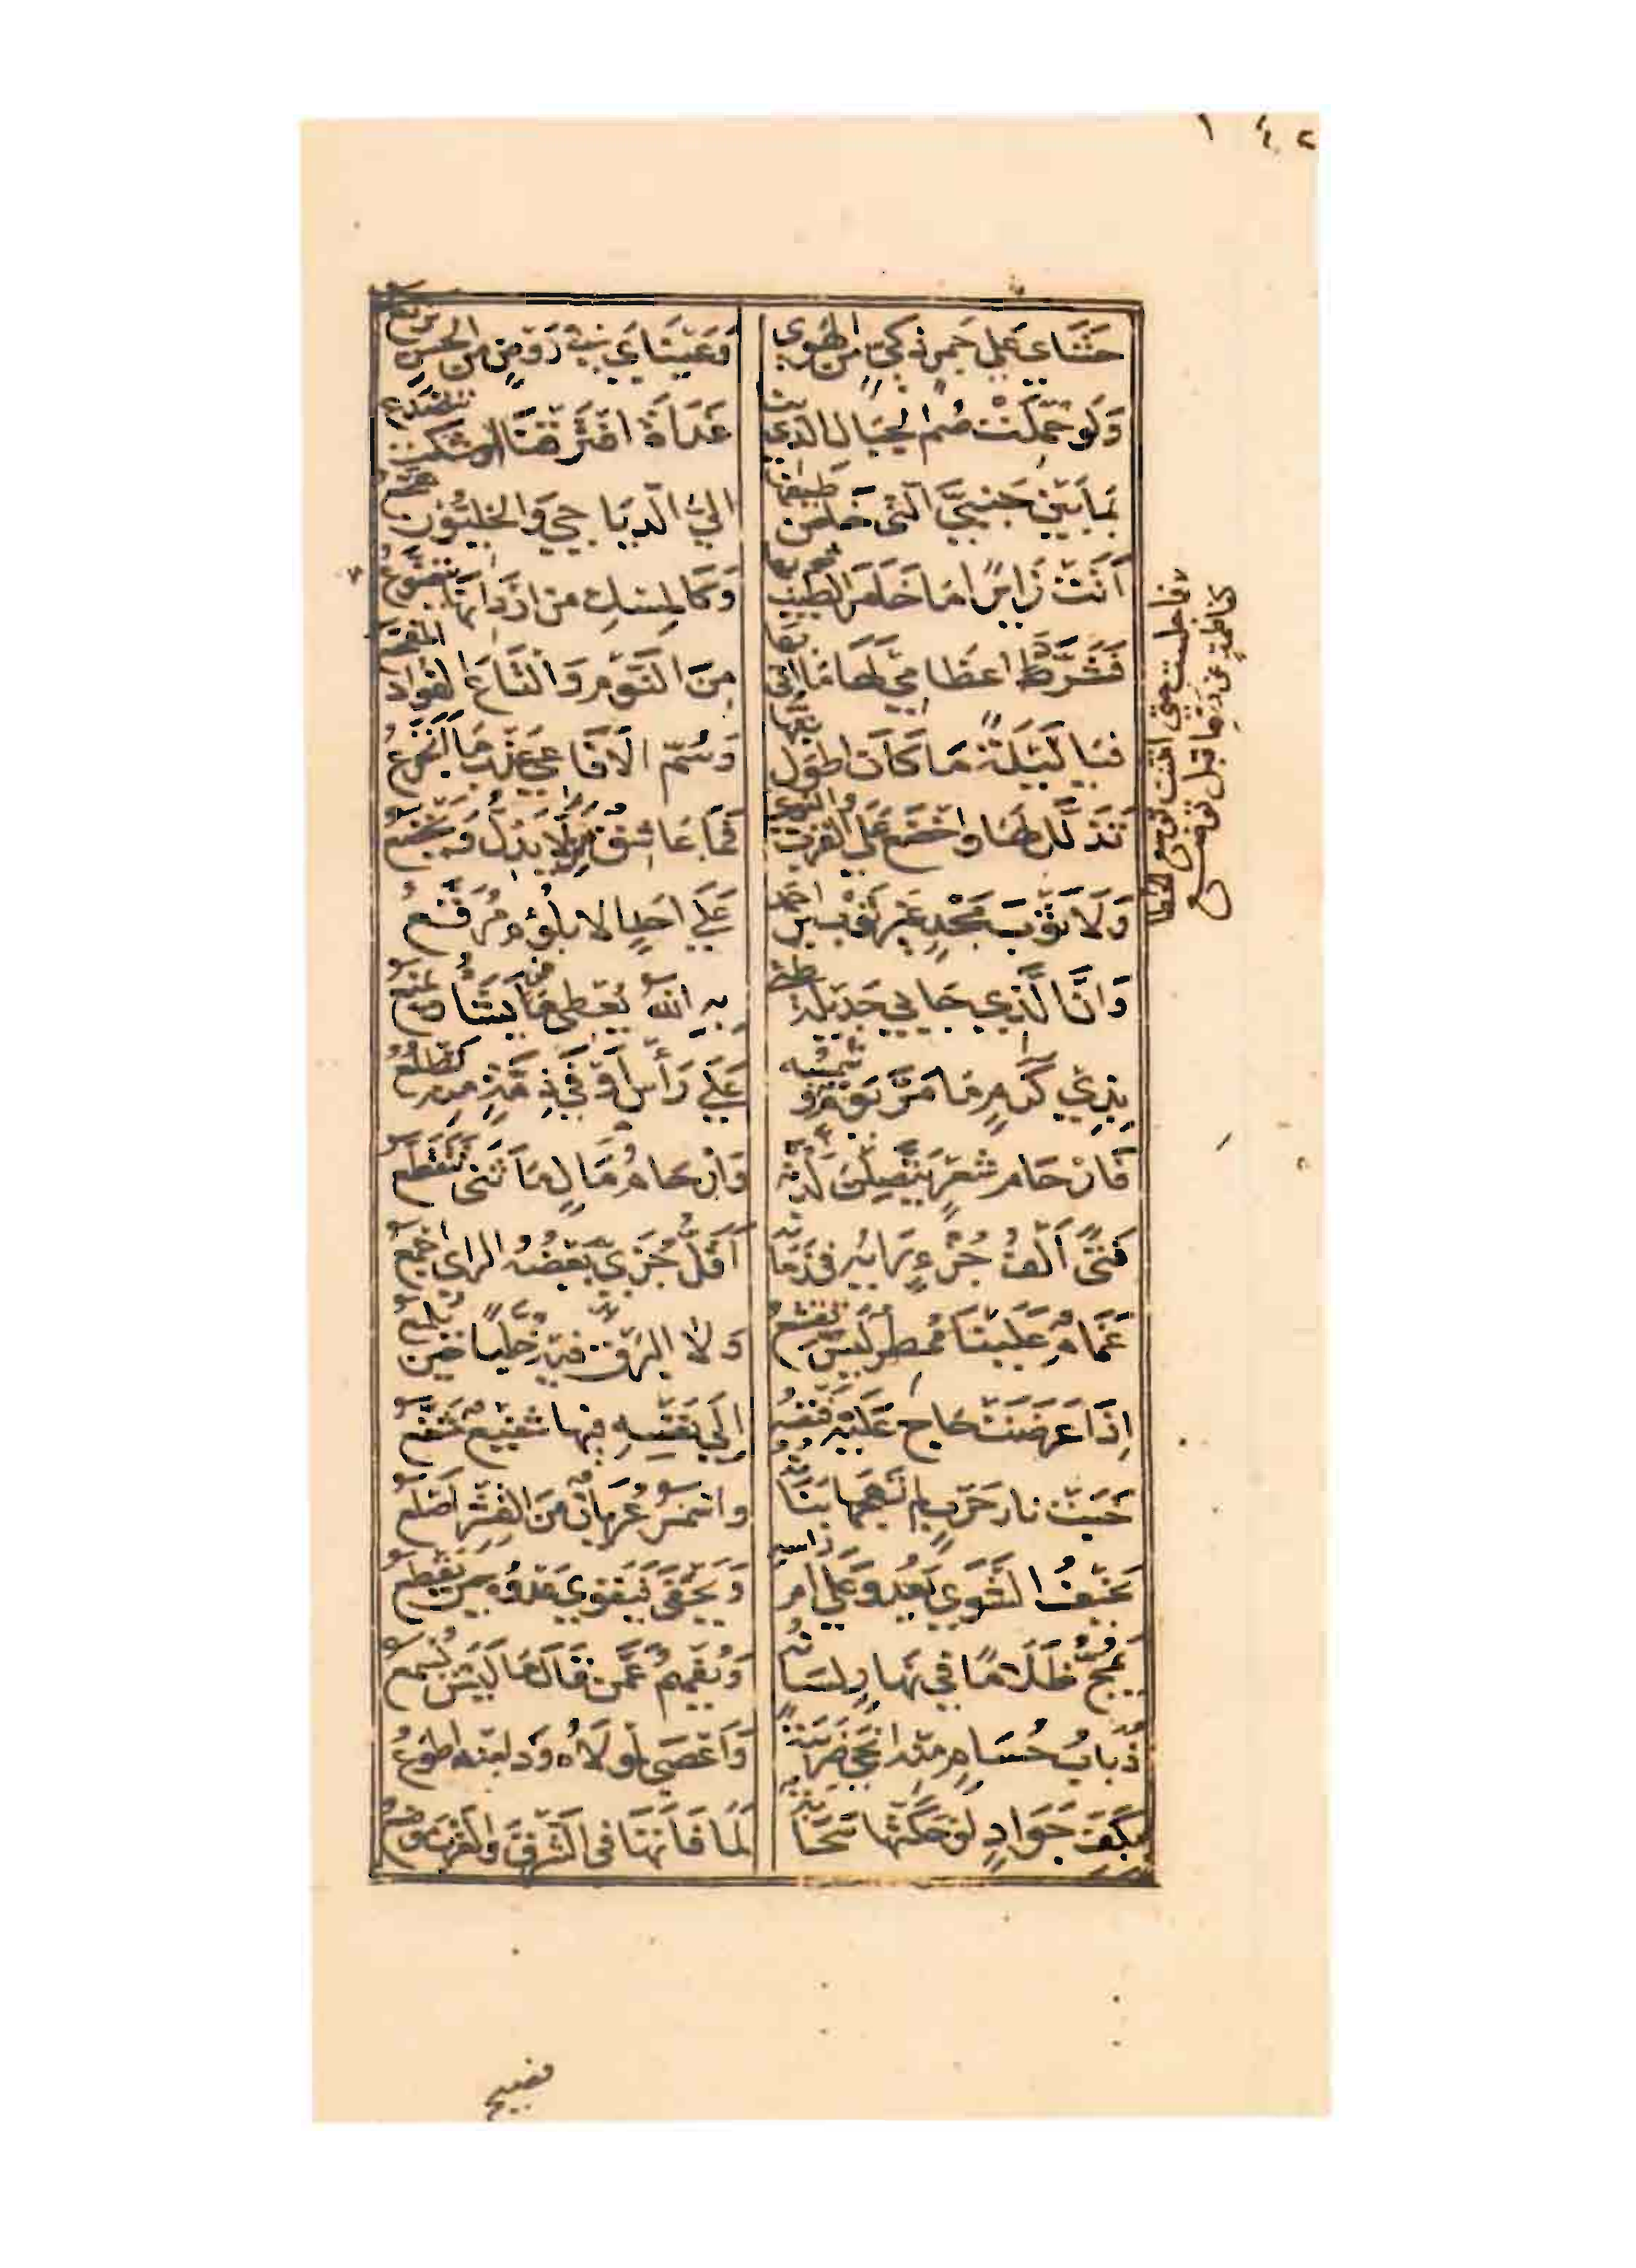 حَشَاي عَلي جَمرٍ ذَكيٍّ من الهَوي وَعَيْنَايَ في رَوْضٍ مِنَ الحُسنِ تَرتَعُ
وَلَو حُمِّلَتْ صُمُّ الجِبَالِ الذي بنا غَدَاةَ افْتَرَقْنَا اوشكت تتصَدَّعُ
بمَا بَيْنَ جَنبَيَّ الَّتي خَاضَ طَيفُها اليَّ الدَّيَاجي وَالخَليُّونَ هجَّعُ
أتَتْ زَايرًا مَا خَامَرَ الطيبُ ثوبها وَكَالمِسكِ مِنْ اردَانِهَا يتضَوَّعُ
فَشَرَّدَ اعظَامي لَهَا مَا اتي بِهَا مِنَ النَّوْمِ وَالْتَاعَ الفُوَادُ المُفجَّعُ
فيَا لَيْلَةً مَا كَانَ اطوَل بتُّها وَسُمُّ الأفَاعي عَذبُ مَا أتَجَرَّعُ
تَذَلَّل لَهَا واخْضَع عَلي القُرب والنوي فَمَا عَاشِقٌ مَن لا يَذِلُّ وَيَخْضَعُ
وَلَا ثَوْبَ مَجْدٍ غَيرَ ثَوْبِ ابن احمَد عَلَي احَدٍ الا بلُؤْمٍ مُرَقَّعُ
وَانَّ الَّذِي حَابي جَدِيلَة طيّئ بِهِ اللهُ يُعطي مَن يَشَاءُ وَيمنَعُ
بذِي كَرَمٍ مَا مَرَّ يَوْمٌ وَشَمْسُه عَلَي رَأسِ أَوْفَي ذِمَّةٍ مِنه تَطْلُعُ
فَارْحَام شعْرٍ يَتَّصِلْنَ لَدُنه وَارْحَامُ مَالٍ مَا تَني تَتَقَطَّع
فَتًي أَلْفُ جُزْءٍ رَايُه في زَمَانه أقَلُّ جُزَيٍّ بَعْضُه الرايُ اجْمَعُ
غَمَامٌ عَلَيْنَا مُمْطِرٌ لَيْسَ يَقشعُ وَلَا البَرْقُ فيهِ خُلَّبًا حين يَلمعُ
إذَا عَرَضَتْ حَاج عَلَيْهِ فَنَفْسُه إلَي نَفْسِهِ فيها شفيعٌ مُشَفَّعُ
خَبَتْ نار حَرْبٍ لم تَهِجْها بَنَانُه واسْمَرُ عُرْيَانٌ مِنَ القِشرِ اصْلَعُ
نَحِيفُ الشَّوَي يَعْدُو عَلَي ام رَاسِه وَيَحْفَي فَيَقْوَي عَدْوُه حِينَ يُقطَعُ
يَمُجُّ ظَلَامًا في نَهَارٍ لِسَانُه وَيُفْهِمُ عَمَّن قَالَ مَا لَيْسَ يُسمَعُ
ذُبَابُ حُسَامٍ منه انْجَي ضَرِيبَةً وَاَعْصَي لِمَوْلَاهُ وَذا منه اطْوَعُ
بكَفِّ جَوَادٍ لَوْ حَكَتْها سَحَابَة لَمَا فَاتَهَا في الشَّرْقِ وَالغَرْبِ مَوْضعُ
فما جلست حتي انثنت توسع الخطا
كفاطمةٍ عن دَرّها قبل ترضع
فصيح